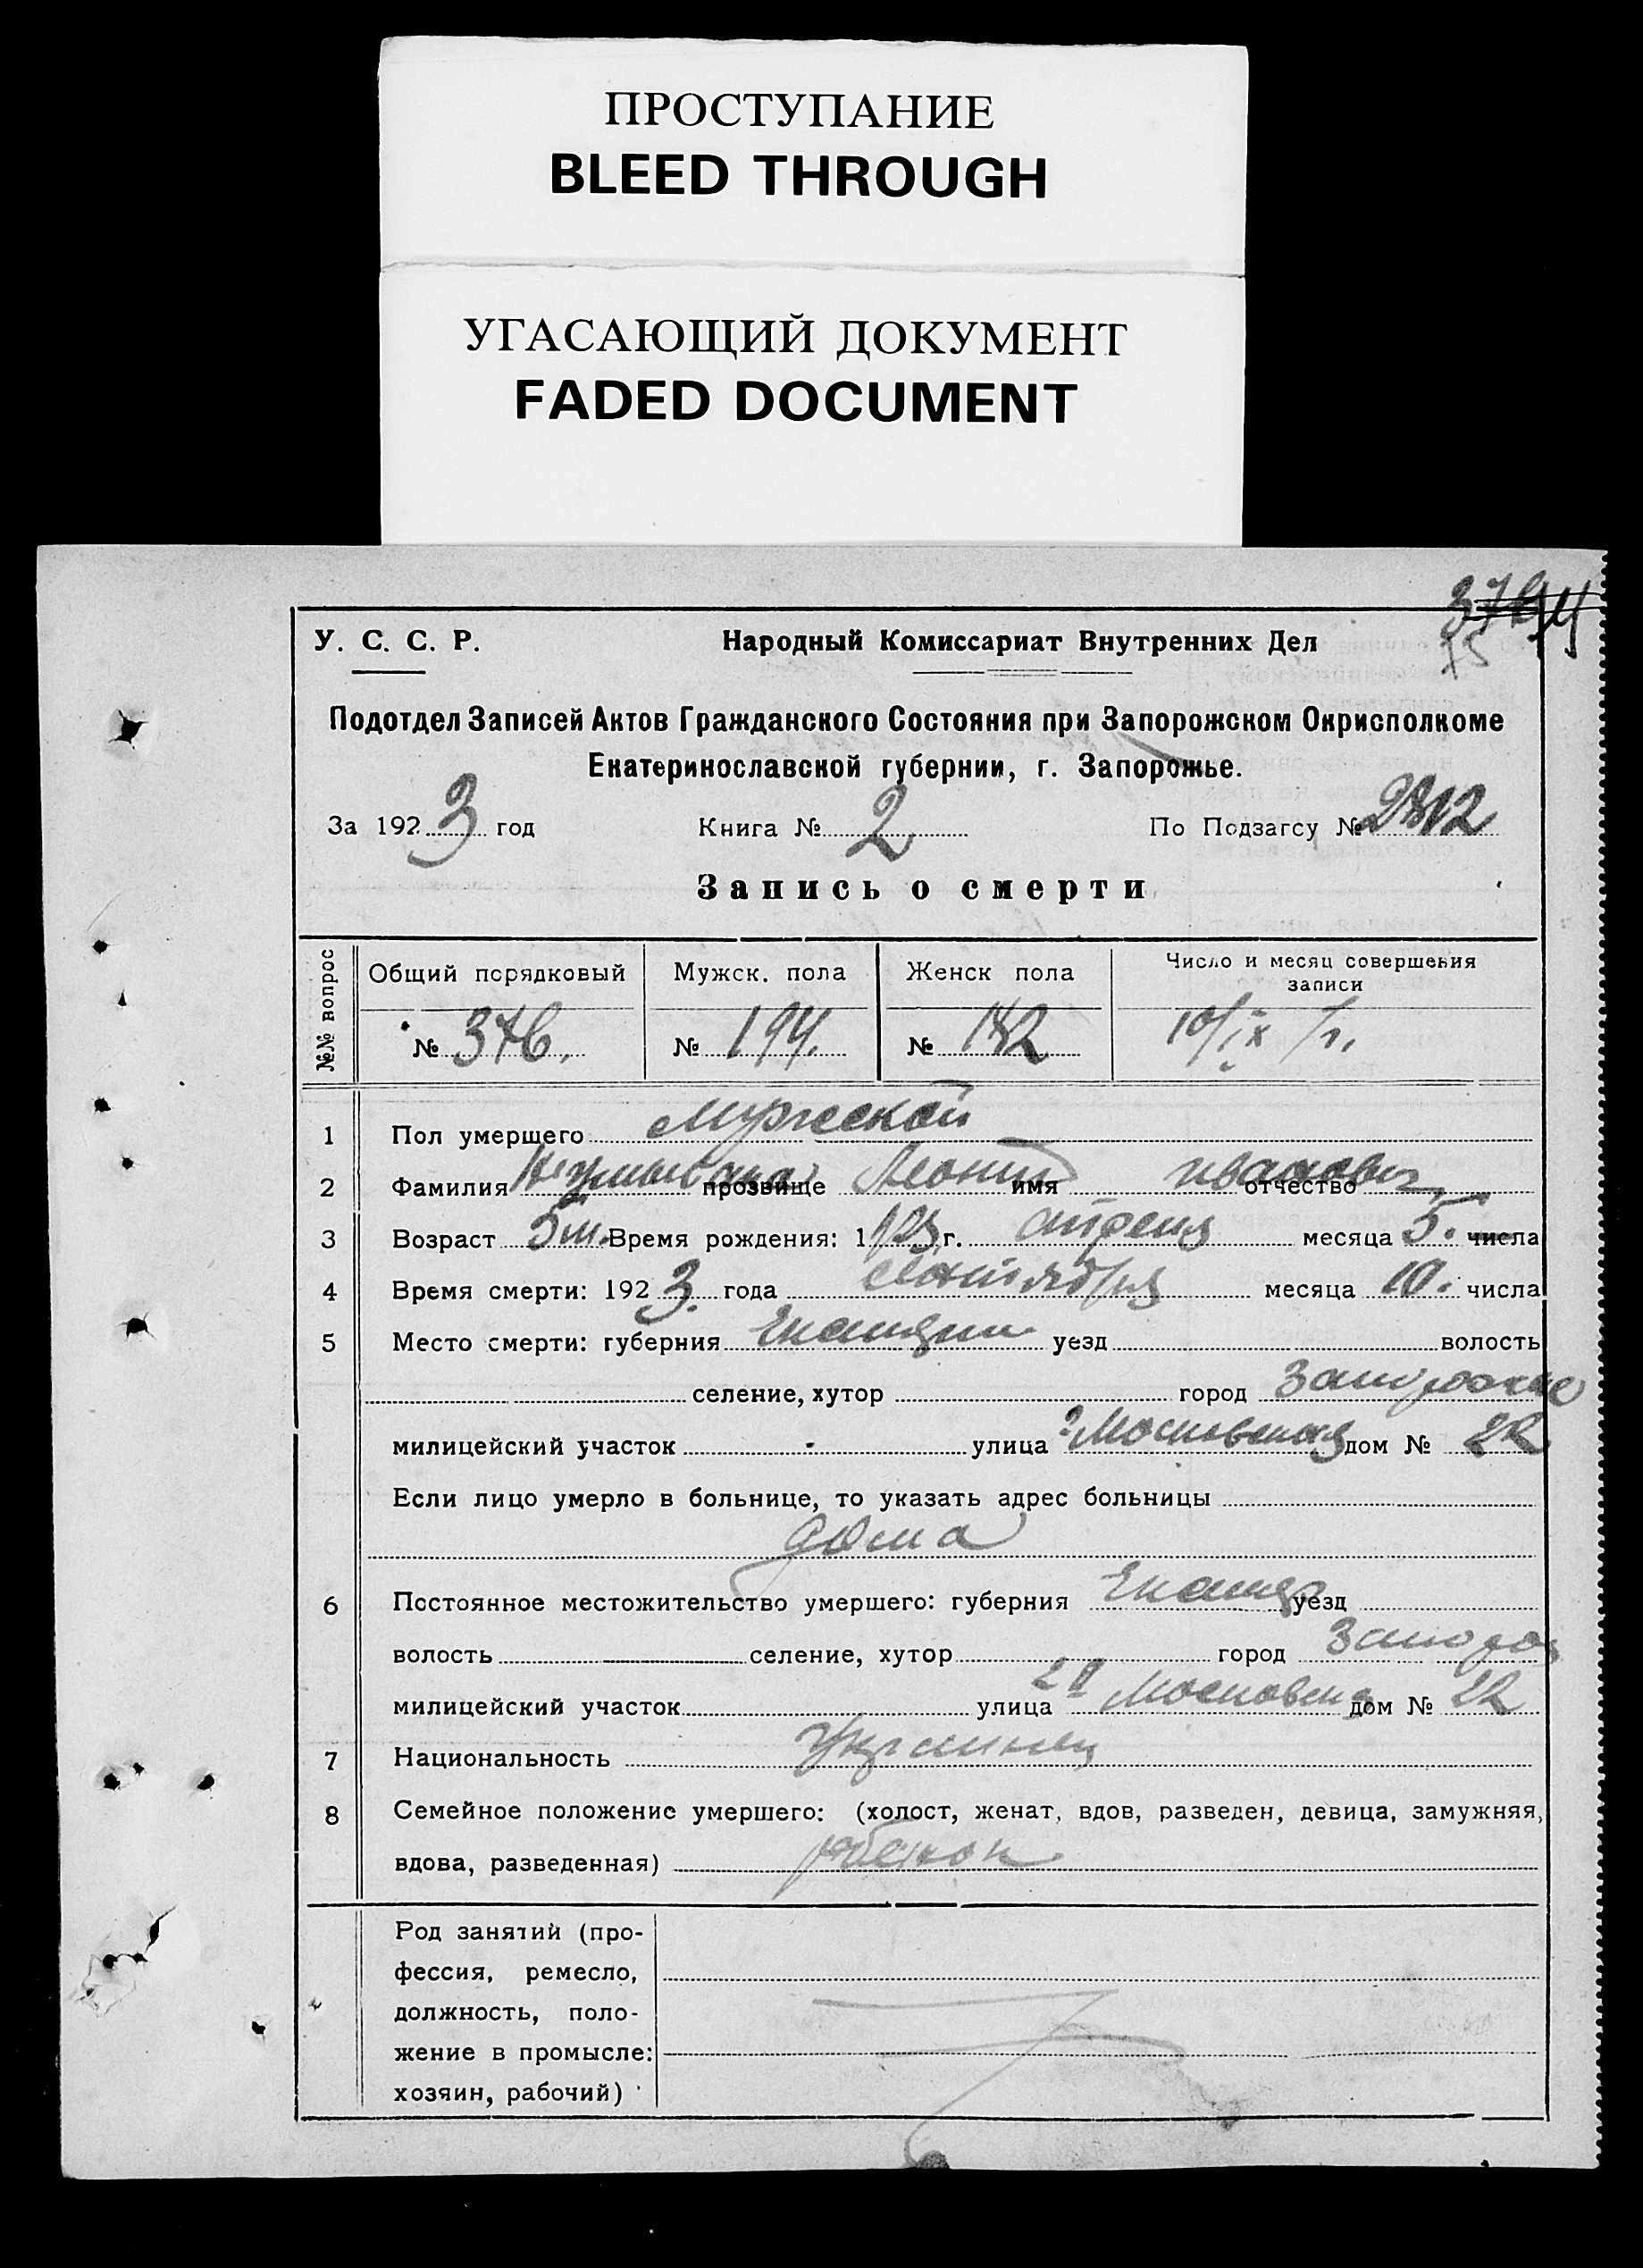 ПРОСТУПАНИЕ
BLEED THROUGH
УГАСАЮЩИЙ ДОКУМЕНТ
FADED DOCUMENT
75
У. С. С. Р. Народный Комиссариат Внутренних Дел
Подотдел Записей Актов Гражданского Состояния при Запорожском Окрисполкоме
Екатеринославской губернии, г. Запорожье.
За 1923 год Книга № 2 По Подзагсу №
Запись о смерти
№№ вопрос
Общий порядковый Мужск. пола Женск пола Число и месяц совершения
записи
№ 376. № 194. № 182 10/IX
1 Пол умершего Мужской
2 Фамилия прозвище Леонид имя Иванович отчество
3 Возраст 5 м. Время рождения: 1923 г. апреля месяца 5. числа
4 Время смерти: 1923. года Сентября месяца 10. числа
5 Место смерти: губерния Екатерин уезд волость
селение, хутор город Запорожье
милицейский участок улица Московская дом № 22
Если лицо умерло в больнице, то указать адрес больницы
дома
6 Постоянное местожительство умершего: губерния Екатер уезд
волость селение, хутор город Запорож
милицейский участок улица 2я Московска дом № 22
7 Национальность Украинец
8 Семейное положение умершего: (холост, женат, вдов, разведен, девица, замужняя,
вдова, разведенная) ребенок
Род занятий (про-
фессия, ремесло,
должность, поло-
жение в промысле:
хозяин, рабочий)